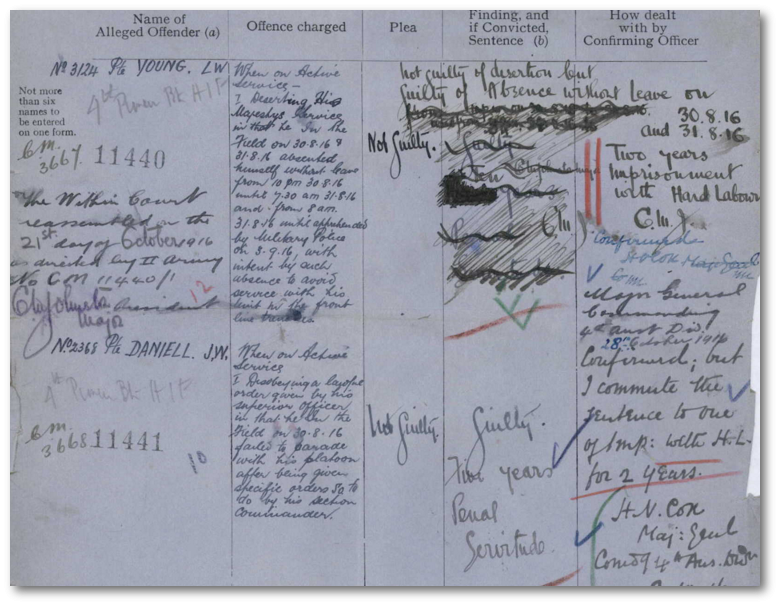 Name of
Alleged Offender (a)
Offence charged
Plea
Finding, and
if Convicted,
Sentence (b)
How dealt
with by
Confirming Officer
Not more
than six
names to
be entered
on one form.
No 3124 Pte YOUNG. LW.
4th Pioneer Bn A I F
C.M.
3667. 11440
The Within Court
reassembled on the
21st day of October 1916
as directed by II Army
No C M 11440/1
President
Major
12
When on Active
Service –
Deserting His
Majestys Service
in that he In the
Field on 30.8.16 &
31.8.16 absented
himself without leave
from 10 pm 30.8.16
until 7.30 am 31.8.16
and from 8 am.
31.8.16 until apprehended
by Military Police
on 3.9.16, with
intent by such
absence to avoid
service with his
unit in the front
line trenches
Not Guilty.
Not guilty of desertion but
Guilty of Absence without Leave on
30.8.16
and 31.8.16
Guilty
C M
Two years
Imprisonment
with Hard Labour
C. M. J.
Confirmed
Major General
Commanding
4th Aust Div.
28th October 1916
No. 2368 Pte DANIELL. J.W.
4th Pioneer Bn A I F
C.M.
3668 11441
10
When on Active
Service
Disobeying a lawful
order given by his
superior officer
in that he In the
Field on 30.8.16
failed to parade
with his platoon
after being given
specific orders so to
do by his section
Commander.
Not Guilty.
Guilty.
Two years
Penal
Servitude.
Confirmed; but
I commute the
sentence to one
of Imp: with H.L.
for 2 years.
H.V. Cox
Maj: Genl
Comdg 4th Aus. Divn